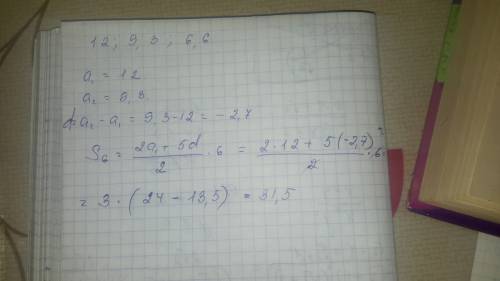 12; 9,3; 6,6
a₁ = 12
a₂ = 9,3
d = a₂ - a₁ = 9,3 - 12 = - 2,7
S₆ = (2a₁ + 5d)/2 · 6 = (2 · 12 + 5(-2,7))/2 · 6 =
= 3 · (24 - 13,5) = 31,5